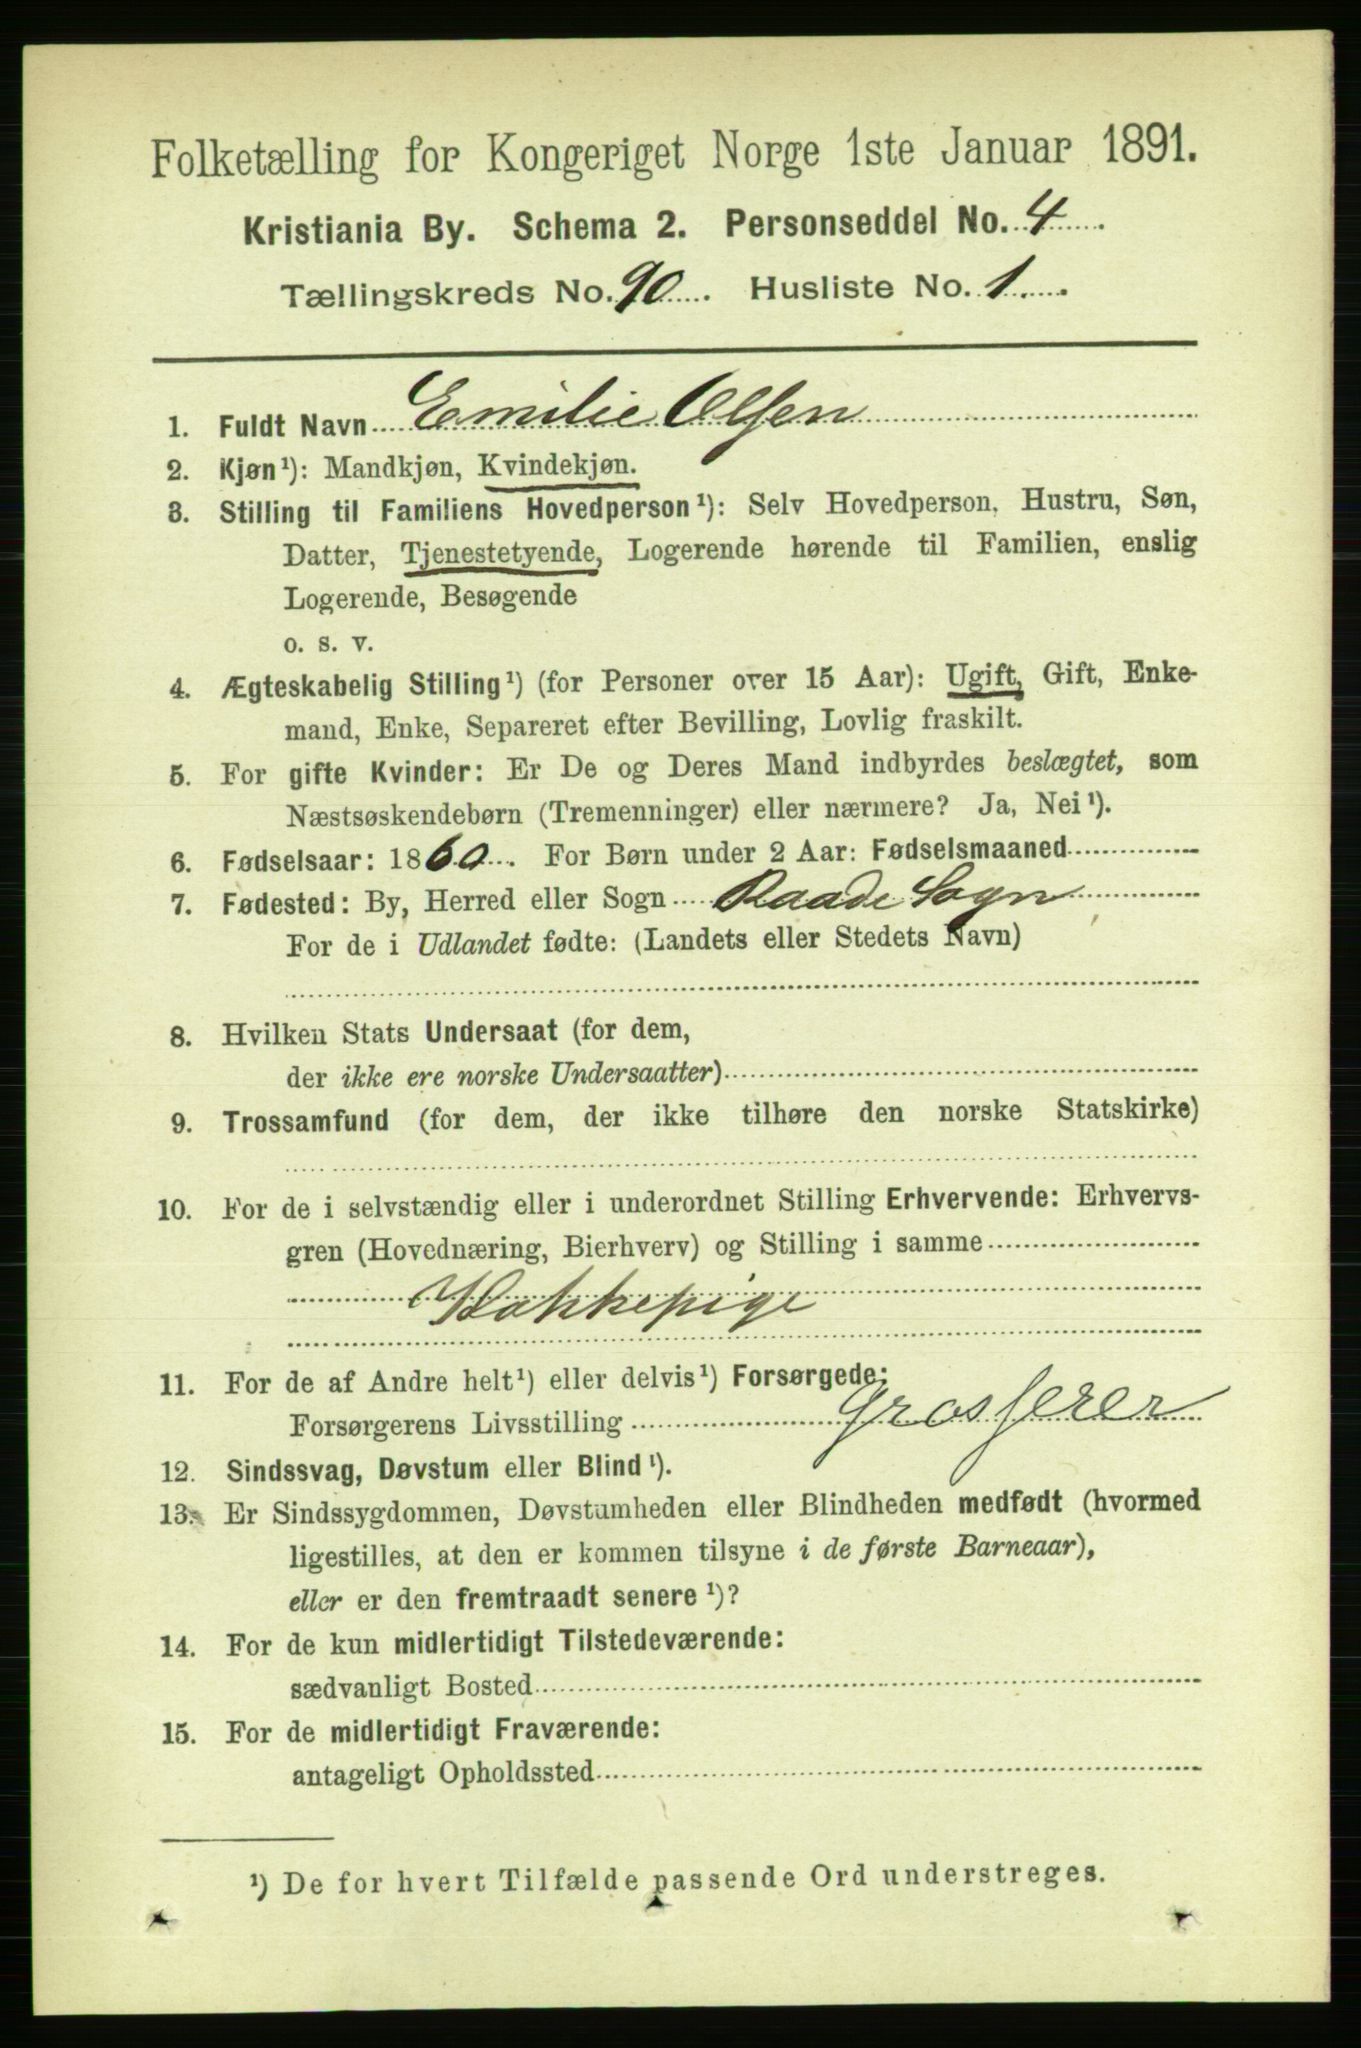 Folketælling for Kongeriget Norge 1ste Januar 1891.
Kristiania By. Schema 2. Personseddel No. 4
Tællingskreds No. 90. Husliste No. 1.
1. Fuldt Navn Emilie Olsen
2. Kjøn¹): Mandkjøn, Kvindekjøn.
3. Stilling til Familiens Hovedperson¹): Selv Hovedperson, Hustru, Søn,
Datter, Tjenestetyende, Logerende hørende til Familien, enslig
Logerende, Besøgende
o. s. v.
4. Ægteskabelig Stilling¹) (for Personer over 15 Aar): Ugift, Gift, Enke-
mand, Enke, Separeret efter Bevilling, Lovlig fraskilt.
5. For gifte Kvinder: Er De og Deres Mand indbyrdes beslægtet, som
Næstsøskendebørn (Tremenninger) eller nærmere? Ja, Nei¹).
6. Fødselsaar: 1860. For Børn under 2 Aar: Fødselsmaaned
7. Fødested: By, Herred eller Sogn Raade Sogn
For de i Udlandet fødte: (Landets eller Stedets Navn)
8. Hvilken Stats Undersaat (for dem,
der ikke ere norske Undersaatter)
9. Trossamfund (for dem, der ikke tilhøre den norske Statskirke)
10. For de i selvstændig eller i underordnet Stilling Erhvervende: Erhvervs-
gren (Hovednæring, Bierhverv) og Stilling i samme
Kokkepige
11. For de af Andre helt¹) eller delvis¹) Forsørgede:
Forsørgerens Livsstilling Grosserer
12. Sindssvag, Døvstum eller Blind¹).
13. Er Sindssygdommen, Døvstumheden eller Blindheden medfødt (hvormed
ligestilles, at den er kommen tilsyne i de første Barneaar),
eller er den fremtraadt senere¹)?
14. For de kun midlertidigt Tilstedeværende:
sædvanligt Bosted
15. For de midlertidigt Fraværende:
antageligt Opholdssted
¹) De for hvert Tilfælde passende Ord understreges.